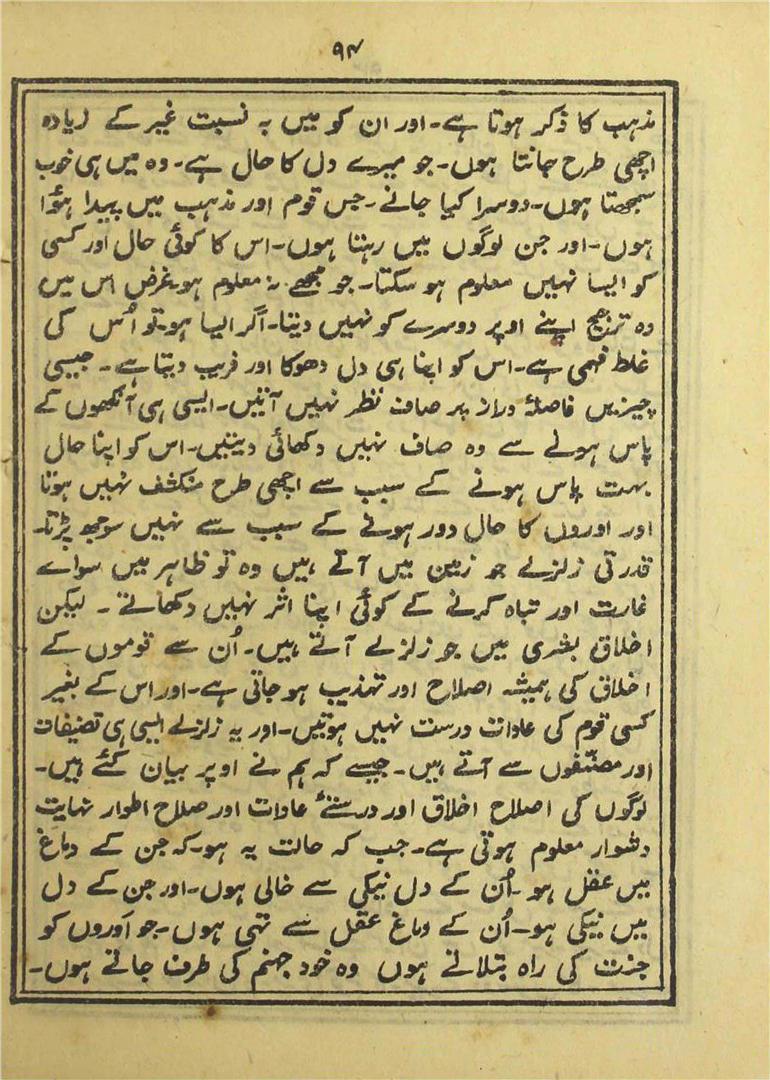 ۹۴
مذہب کا ذکر ہوتا ہے۔ اور ان کو میں بہ نسبت غیر کے زیادہ
اچھی طرح جانتا ہوں۔ جو میرے دل کا حال ہے۔ وہ میں ہی خوب
سمجھتا ہوں۔ دوسرا کیا جانے۔ جس قوم اور مذہب میں پیدا ہؤا
ہوں۔ اور جن لوگوں میں رہتا ہوں۔ اس کا کوئی حال اور کسی
کو ایسا نہیں معلوم ہو سکتا۔ جو مجھے نہ معلوم ہو۔ غرض اس میں
وہ ترجیح اپنے اوپر دوسرے کو نہیں دیتا۔ اگر ایسا ہو۔ تو اُس کی
غلط فہمی ہے۔ اس کو اپنا ہی دل دھوکا اور فریب دیتا ہے۔ جیسی
چیزیں فاصلۂ دراز پر صاف نظر نہیں آتیں۔ ایسی ہی آنکھوں کے
پاس ہونے سے وہ صاف نہیں دکھائی دیتیں۔ اس کو اپنا حال
بہت پاس ہونے کے سبب سے اچھی طرح منکشف نہیں ہوتا
اور اوروں کا حال دور ہونے کے سبب سے نہیں سوجھ پڑتا۔
قدرتی زلزلے جو زمین میں آتے ہیں وہ تو ظاہر میں سواے
غارت اور تباہ کرنے کے کوئی اپنا اثر نہیں دکھاتے۔ لیکن
اخلاق بشری میں جو زلزلے آتے ہیں۔ اُن سے قوموں کے
اخلاق کی ہمیشہ اصلاح اور تہذیب ہو جاتی ہے۔ اور اس کے بغیر
کسی قوم کی عادات درست نہیں ہوتیں۔ اور یہ زلزلے ایسی ہی تصنیفات
اور مصنّفوں سے آتے ہیں۔ جیسے کہ ہم نے اوپر بیان کئے ہیں۔
لوگوں کی اصلاح اخلاق اور درستئ عادات اور صلاح اطوار نہایت
دشوار معلوم ہوتی ہے۔ جب کہ حالت یہ ہو۔ کہ جن کے دماغ
میں عقل ہو۔ اُن کے دل نیکی سے خالی ہوں۔ اور جن کے دل
میں نیکی ہو۔ اُن کے دماغ عقل سے تہی ہوں۔ جو اَوروں کو
جنت کی راہ بتلاتے ہوں وہ خود جہنم کی طرف جاتے ہوں۔